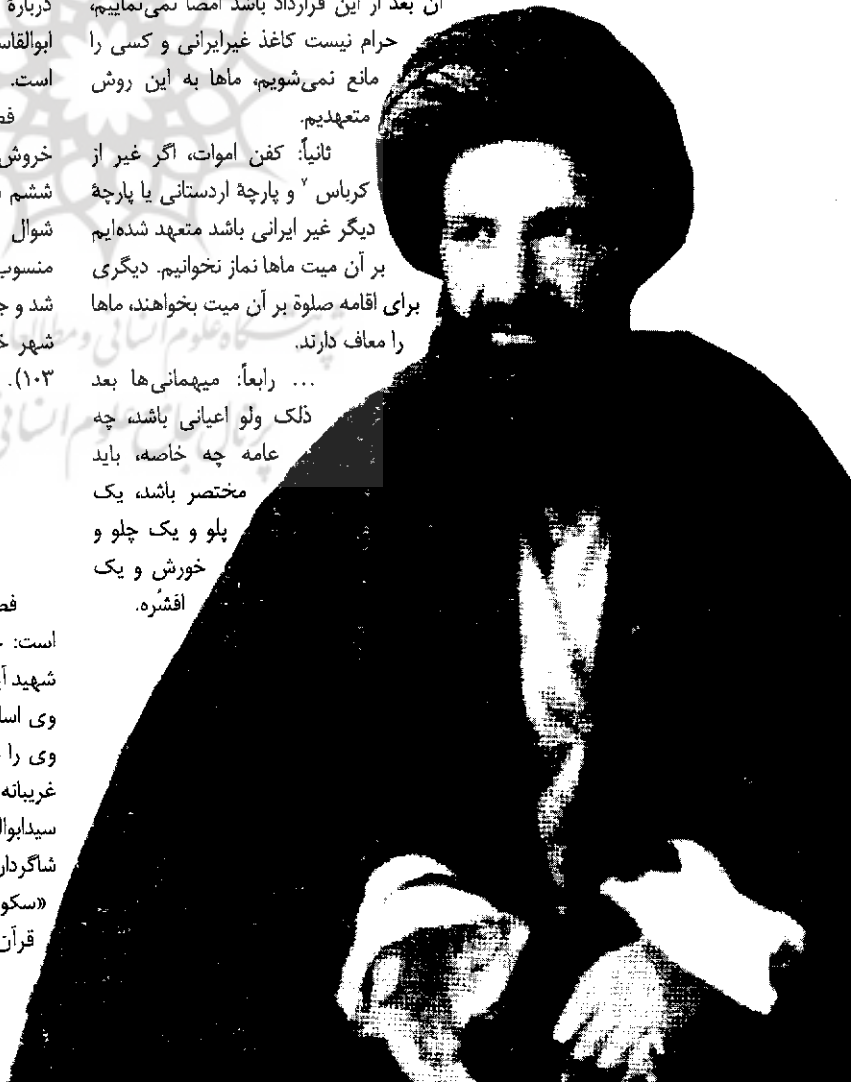 آن بعد از این قرارداد باشد امضا نمی‌نماییم،
حرام نیست کاغذ غیرایرانی و کسی را
مانع نمی‌شویم، ماها به این روش
متعهدیم.
ثانیاً: کفن اموات، اگر غیر از
کرباس ۷ و پارچهٔ اردستانی یا پارچهٔ
دیگر غیر ایرانی باشد متعهد شده‌ایم
بر آن میت ماها نماز نخوانیم. دیگری
برای اقامه صلوة بر آن میت بخواهند، ماها
را معاف دارند.
... رابعاً: میهمانی‌ها بعد
ذلک ولو اعیانی باشد، چه
عامه چه خاصه، باید
مختصر باشد، یک
پلو و یک چلو و
خورش و یک
افشُره.
دربارهٔ
است.
خروش
ششم
شوال
منسوب
شد و
شهر
۱۰۳).
است:
شهید
وی
وی را
غریبانه
پژوهشگاه علوم انسانی و مطالعات
پرتال جامع علوم انسانی